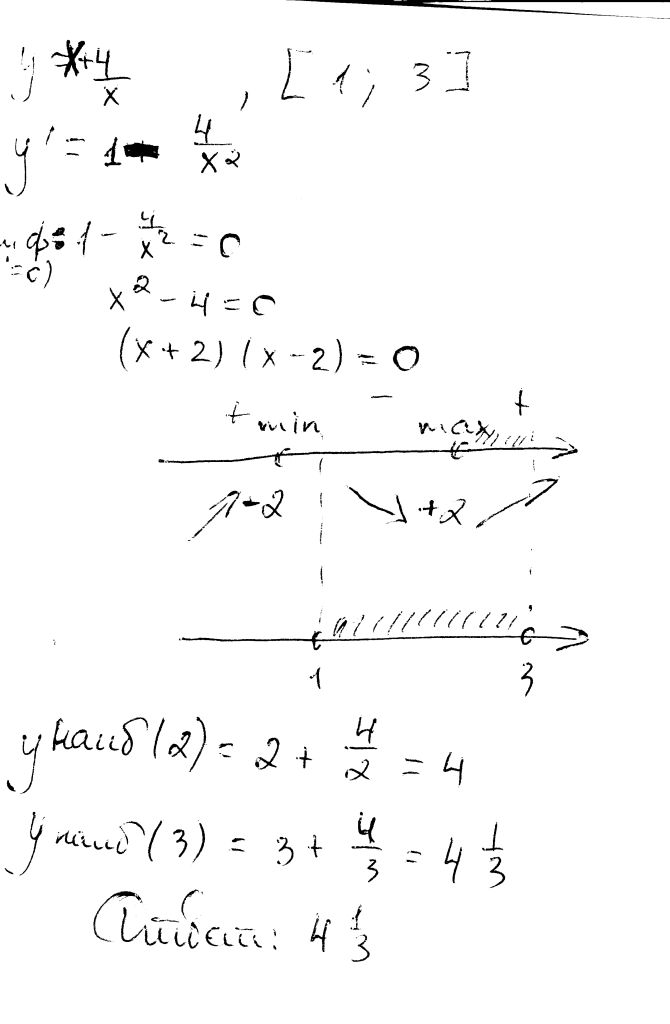 y = x + 4/x , [1; 3]
y' = 1 - 4/x²
ф: 1 - 4/x² = 0
'=0)
x² - 4 = 0
(x + 2) (x - 2) = 0
+ min - max +
-2 +2
1 3
y наиб (2) = 2 + 4/2 = 4
y наиб (3) = 3 + 4/3 = 4 1/3
Ответ: 4 1/3